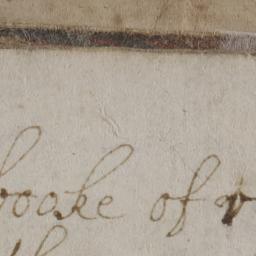 booke of